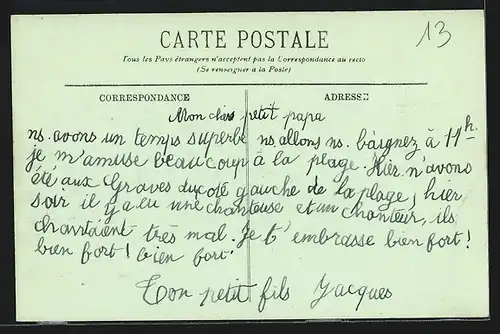 13
CARTE POSTALE
Tous les Pays étrangers n'acceptent pas la Correspondance au recto
(Se renseigner à la Poste)
CORRESPONDANCE
ADRESSE
Mon cher petit papa
ns. avons un temps superbe ns. allons ns. baignez à 11h.
je m'amuse beaucoup à la plage. Hier n'avons
été aux Graves du coté gauche de la plage, hier
soir il y a eu une chanteuse et un chanteur, ils
chantaient très mal. Je t'embrasse bien fort!
bien fort! bien fort!
Ton petit fils Jacques